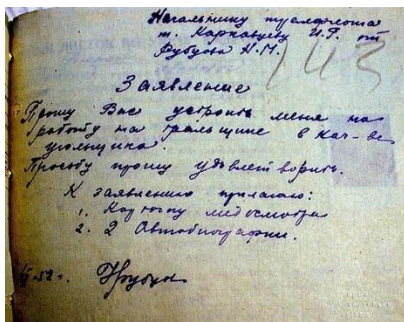 Начальнику тралфлота
т. Каркавцеву И.Г. от
Рубцова Н.М.
143
Заявление
Прошу Вас устроить меня на
работу на тральщике в кач-ве
угольщика.
Просьбу прошу удовлетворить.
К заявлению прилагаю:
1. Карточку медосмотра
2. 2 Автобиографии.
52 г. Н Рубцов